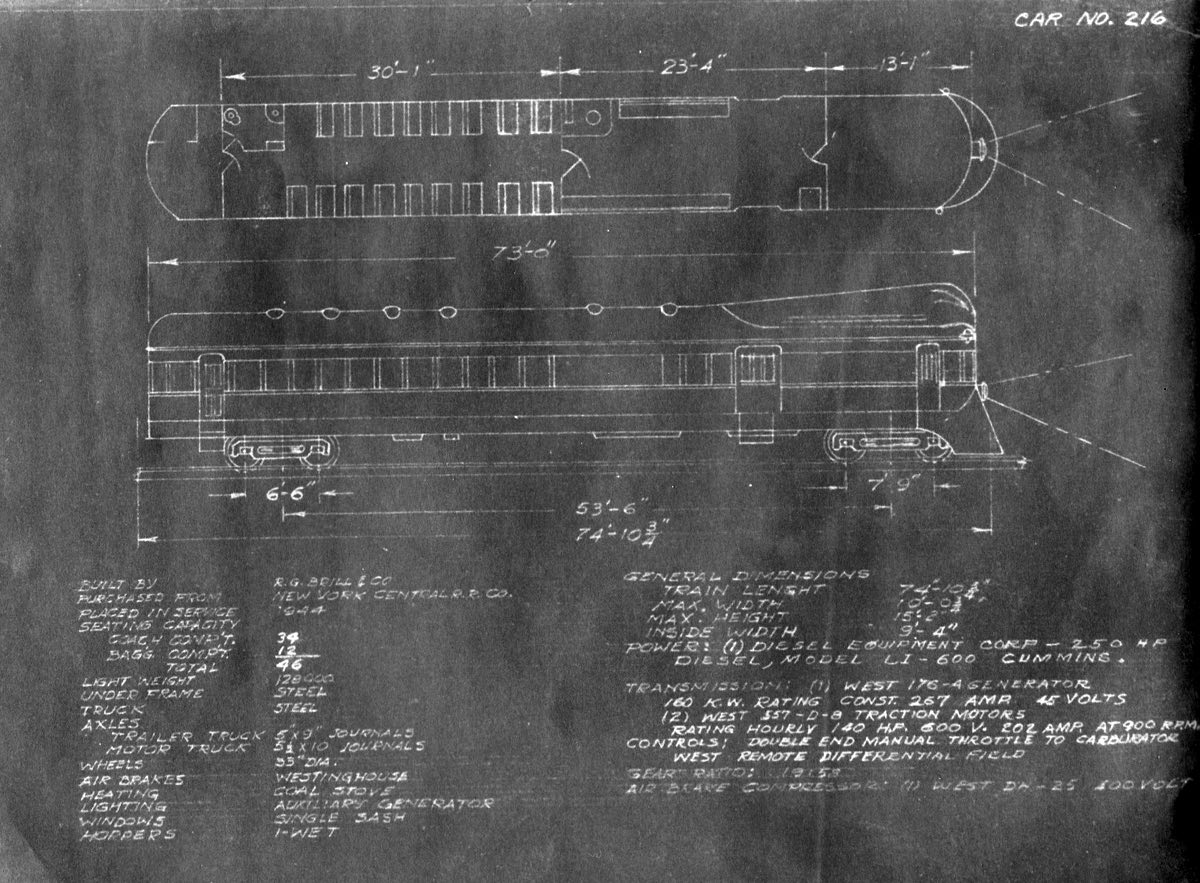 CAR NO. 216
30'-1" 23'-4" 13'-1"
73'-0"
6'-6" 7'9"
53'-6"
74'-10 3/4"
BUILT BY R.G. BRILL & CO
PURCHASED FROM NEW YORK CENTRAL R.R. CO.
PLACED IN SERVICE 1944
SEATING CAPACITY
COACH COMP'T. 34
BAGG COMP'T. 12
TOTAL 46
LIGHT WEIGHT 128000
UNDER FRAME STEEL
TRUCK STEEL
AXLES
TRAILER TRUCK 5"x9" JOURNALS
MOTOR TRUCK 5½x10 JOURNALS
WHEELS 33" DIA.
AIR BRAKES WESTINGHOUSE
HEATING COAL STOVE
LIGHTING AUXILIARY GENERATOR
WINDOWS SINGLE SASH
HOPPERS 1-WET
GENERAL DIMENSIONS
TRAIN LENGHT 74'-10 3/4"
MAX. WIDTH 10'-0
MAX. HEIGHT 15'-2"
INSIDE WIDTH 9'-4"
POWER: (1) DIESEL EQUIPMENT CORP - 250 HP
DIESEL, MODEL LI-600 CUMMINS.
TRANSMISSION: (1) WEST 176-A GENERATOR
160 K.W. RATING CONST. 267 AMP. VOLTS
(2) WEST 557-D-8 TRACTION MOTORS
RATING HOURLY 140 H.P. 600 V. 202 AMP. AT 900 RPM
CONTROLS: DOUBLE END MANUAL THROTTLE TO CARBURATOR
WEST REMOTE DIFFERENTIAL FIELD
GEAR RATIO: 19:58
AIR BRAKE COMPRESSOR: (1) WEST DH-25 600 VOLT